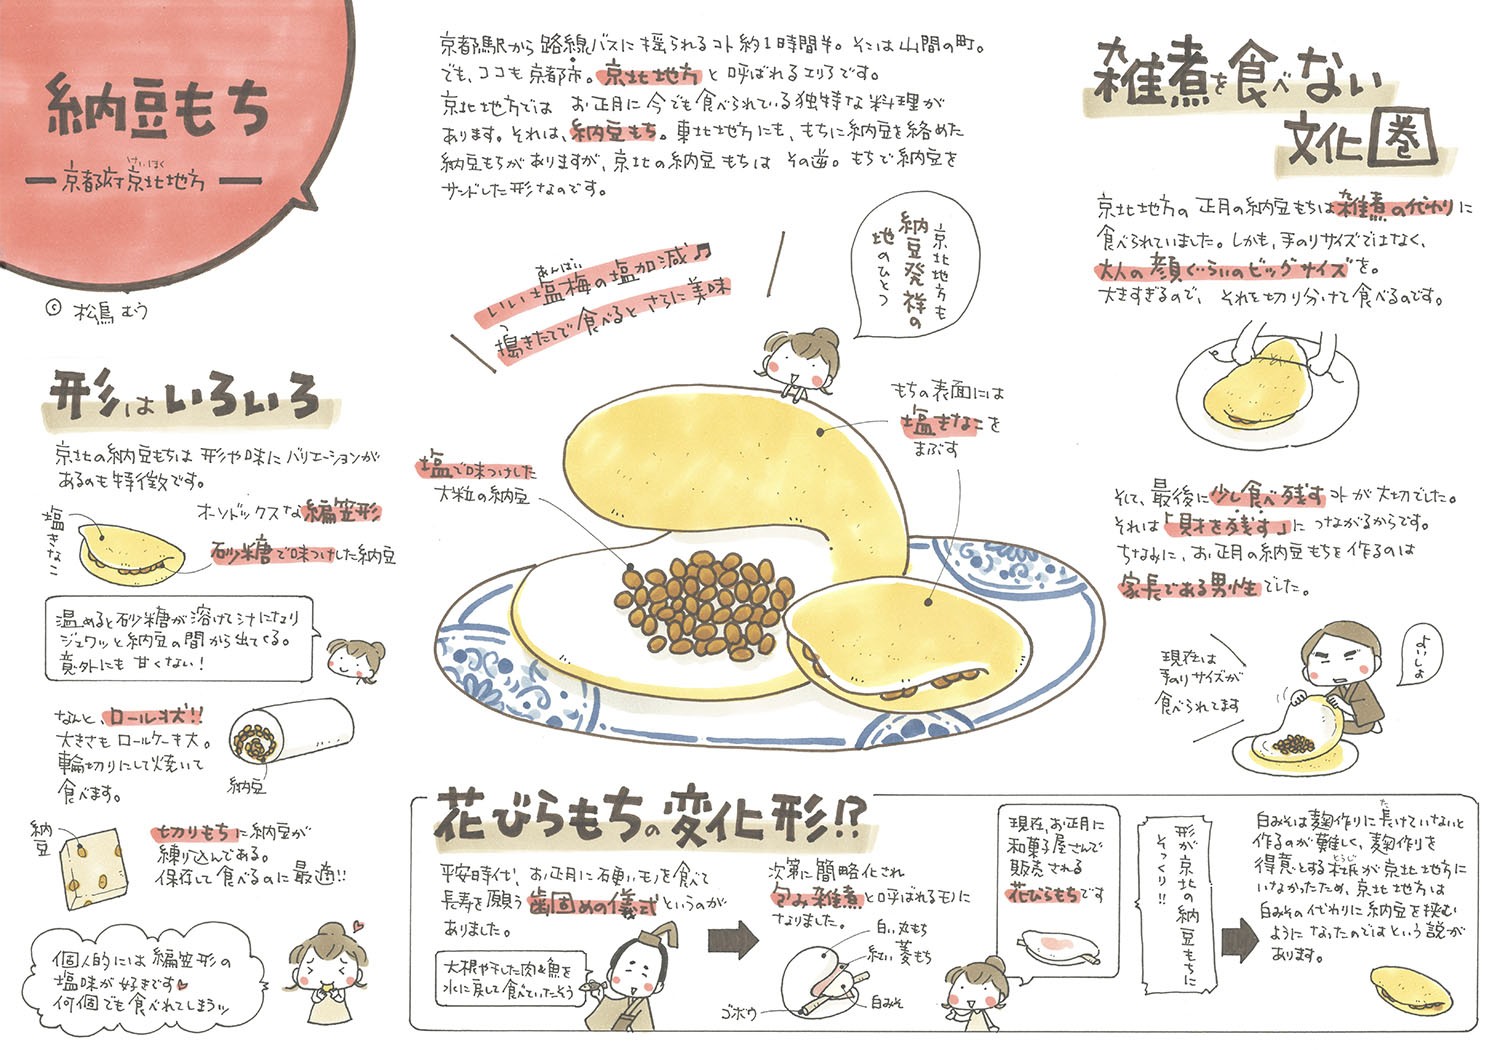 納豆もち
けいほく
京都府京北地方
© 松鳥むう
京都駅から路線バスに揺られるコト約1時間半。そこは山間の町。
でも、ココも京都市。京北地方と呼ばれるエリアです。
京北地方では お正月に今でも食べられている独特な料理が
あります。それは、納豆もち。東北地方にも、もちに納豆を絡めた
納豆もちがありますが、京北の納豆もちは その逆。もちで納豆を
サンドした形なのです。
あんばい
いい塩梅の塩加減♬
つ
搗きたてで食べるとさらに美味
京北地方も
納豆発祥の
地のひとつ
もちの表面には
塩きなこを
まぶす
塩で味つけした
大粒の納豆
雑煮を食べない
文化圏
京北地方の正月の納豆もちは雑煮の代わりに
食べられていました。しかも、手のりサイズではなく、
大人の顔ぐらいのビッグサイズを。
大きすぎるので、それを切り分けて食べるのです。
そして、最後に少し食べ残すコトが大切でした。
それは「財を残す」につながるからです。
ちなみに、お正月の納豆もちを作るのは
家長である男性でした。
現在は
手のりサイズが
食べられてます
よいしょ
形はいろいろ
京北の納豆もちは形や味にバリエーションが
あるのも特徴です。
オーソドックスな編笠形
塩きなこ
砂糖で味つけした納豆
温めると砂糖が溶けて汁になり
ジュワッと納豆の間から出てくる。
意外にも甘くない!
なんと、ロール状!!
大きさもロールケーキ大。
輪切りにして焼いて
食べます。
納豆
納豆
切りもちに納豆が
練り込んである。
保存して食べるのに最適!!
個人的には編笠形の
塩味が好きです♥
何個でも食べれてしまうッ
花びらもちの変化形!?
平安時代、お正月に硬いモノを食べて
長寿を願う歯固めの儀式というのが
ありました。
大根や干した肉&魚を
水に戻して食べていたそう
次第に簡略化され
包み雑煮と呼ばれるモノに
なりました。
白い丸もち
紅い菱もち
白みそ
ゴボウ
現在、お正月に
和菓子屋さんで
販売される
花びらもちです
形が京北の納豆もちに
そっくり!!
た
白みそは麹作りに長けていないと
作るのが難しく、麹作りを
とうじ
得意とする杜氏が京北地方に
いなかったため、京北地方は
白みその代わりに納豆を挟む
ようになったのではという説が
あります。